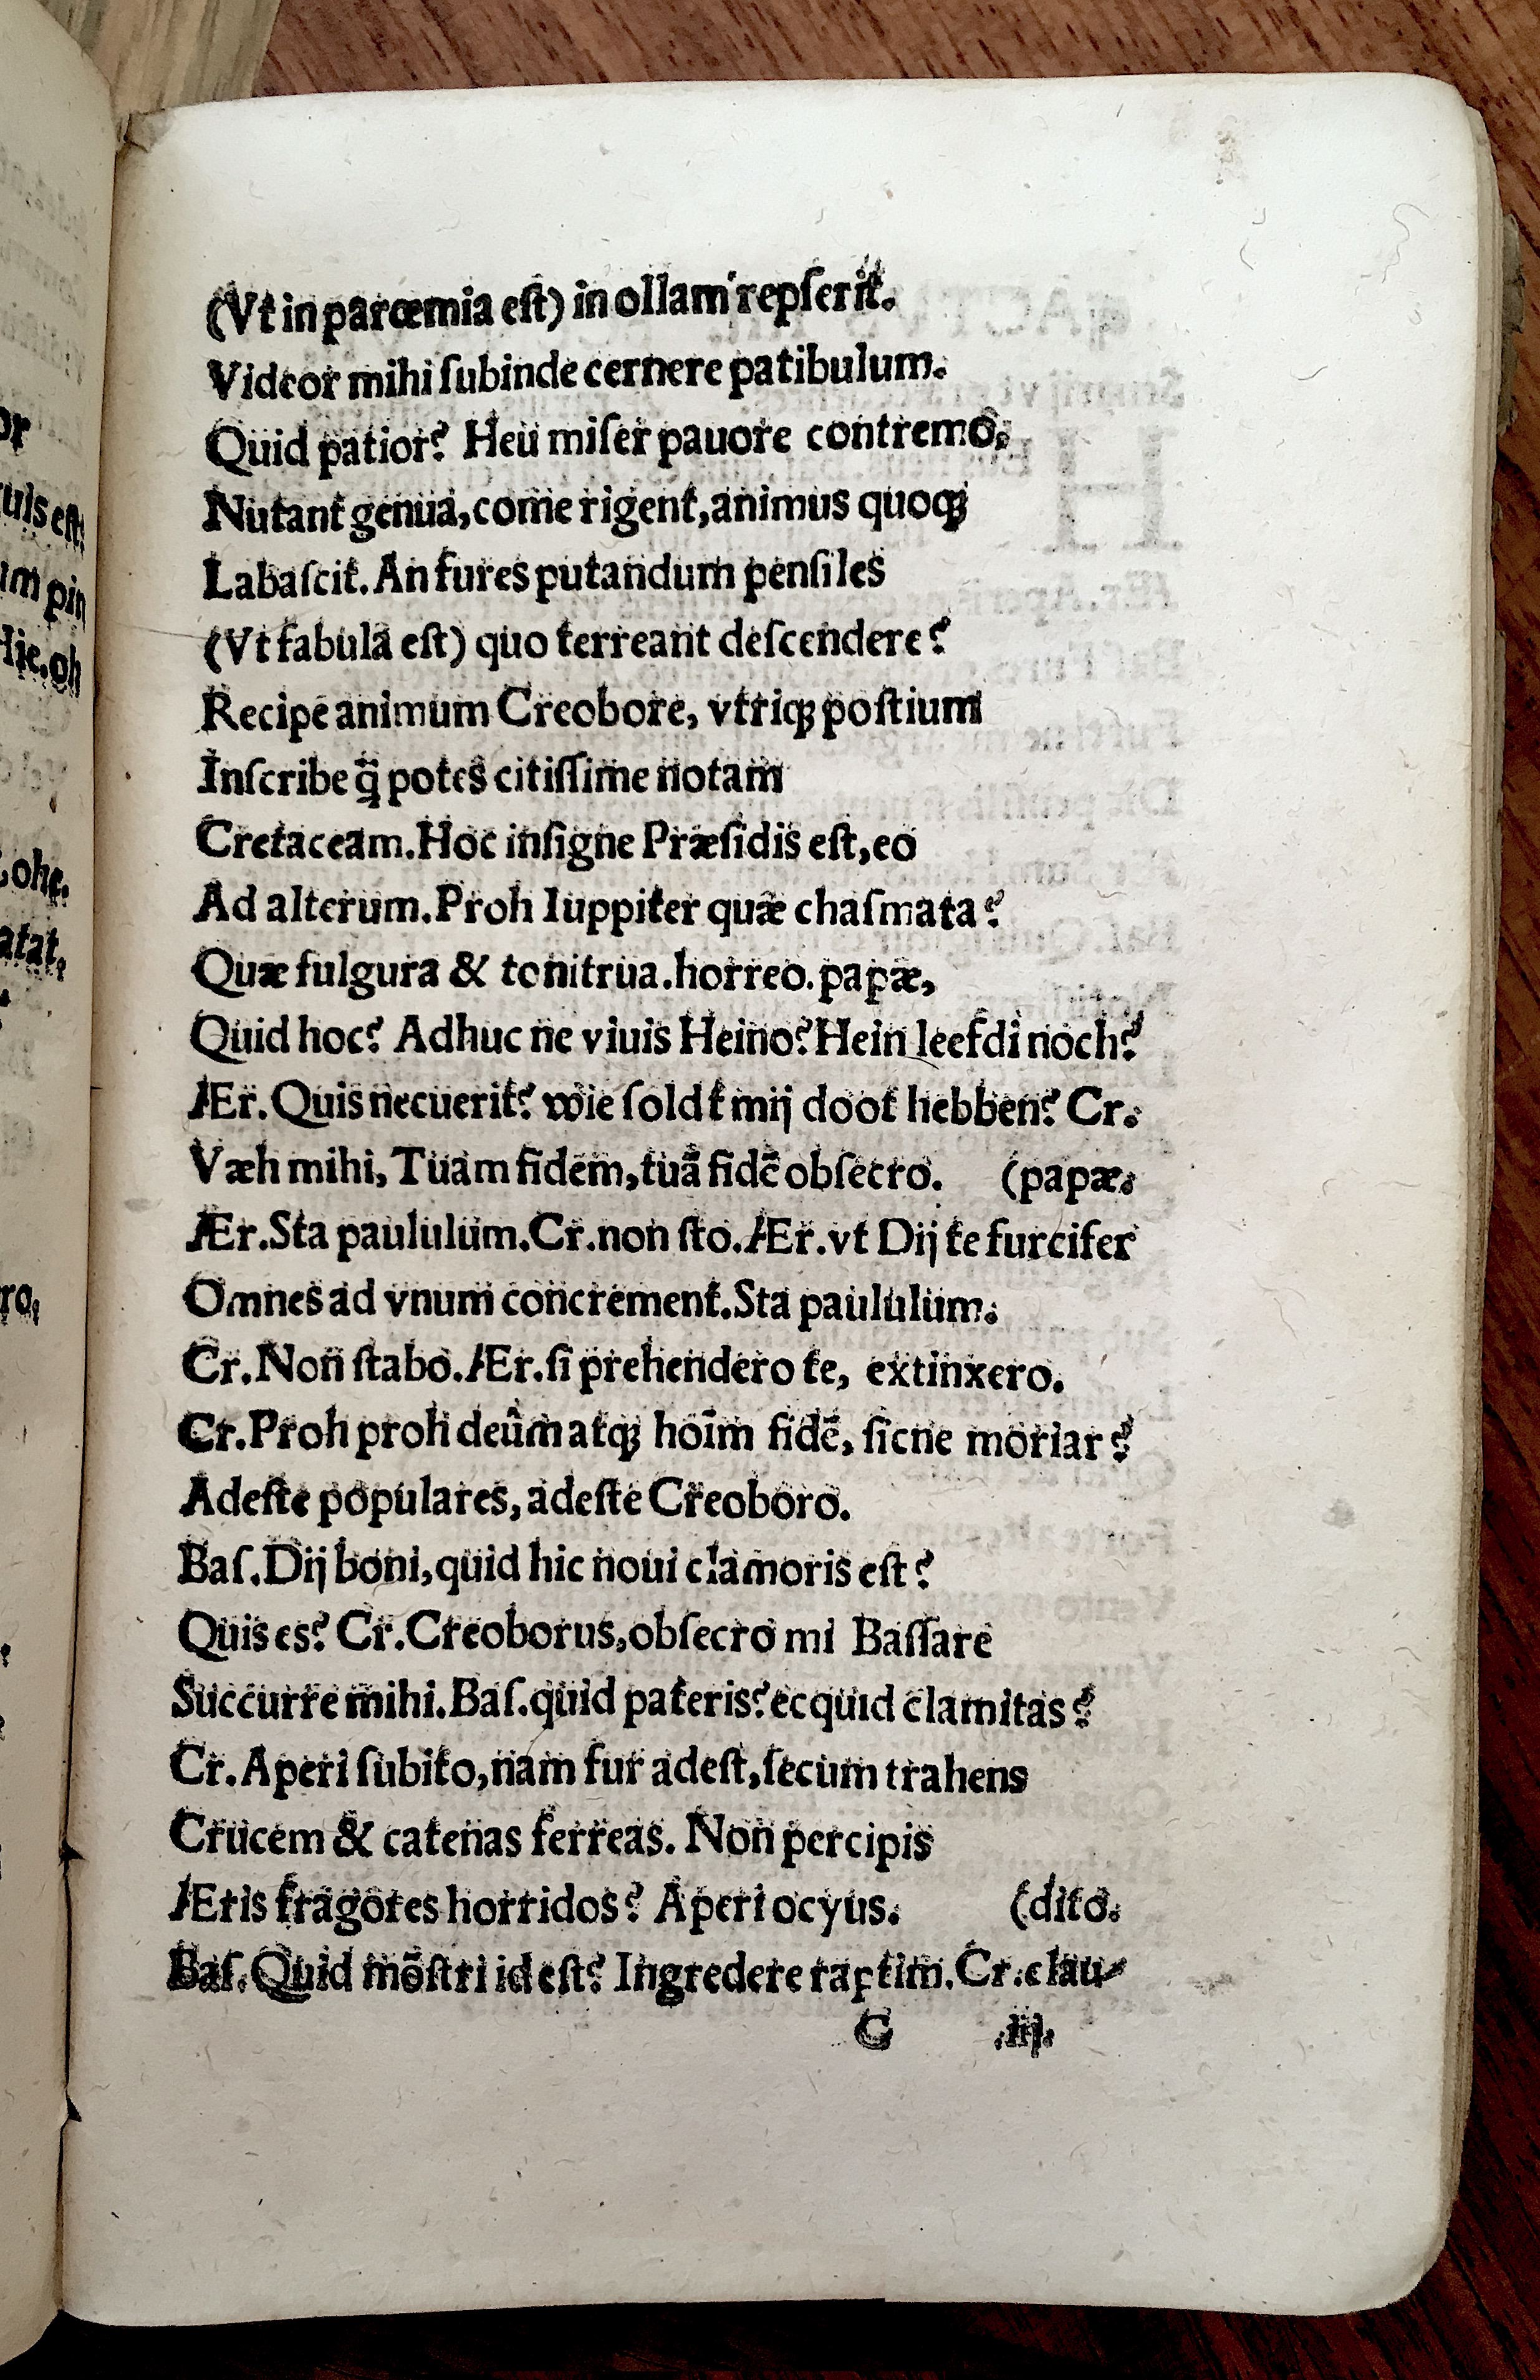 (Vt in parœmia eſt) in ollam repſerit.
Videor mihi ſubinde cernere patibulum.
Quid patior? Heu miſer pauore contremo.
Nutant genua, come rigent, animus quoqꝫ
Labaſcit. An fures putandum penſiles
(Vt fabula eſt) quo terreant deſcendere?
Recipe animum Creobore, vtriqꝫ poſtium
Inſcribe q̃ potes citiſſime notam
Cretaceam. Hoc inſigne Præſidis eſt, eo
Ad alterum. Proh Iuppiter quæ chaſmata?
Quæ fulgura & tonitrua. horreo. papæ,
Quid hoc? Adhuc ne viuis Heino? Hein leefdi noch?
Ær. Quis necuerit? wie ſoldt mij doot hebben? Cr.
Væh mihi, Tuam fidem, tuā fidē obſecro. (papæ.
Ær. Sta paululum. Cr. non ſto. Ær. vt Dij te furcifer
Omnes ad vnum concrement. Sta paululum.
Cr. Non ſtabo. Ær. ſi prehendero te, extinxero.
Cr. Proh proh deûm atqꝫ hoīm fidē, ſicne moriar?
Adeſte populares, adeſte Creoboro.
Baſ. Dij boni, quid hic noui clamoris eſt?
Quis es? Cr. Creoborus, obſecro mi Baſſare
Succurre mihi. Baſ. quid pateris? ecquid clamitas?
Cr. Aperi ſubito, nam fur adeſt, ſecum trahens
Crucem & catenas ferreas. Non percipis
Æris fragores horridos? Aperi ocyus. (dito.
Baſ. Quid mōſtri id eſt? Ingredere raptim. Cr. clau-
C .iij.
or
uis eſt:
um pin
Hic. oh
ohe.
atat.
ro,